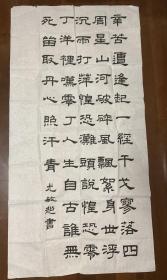 辛苦遭逢起一經干戈寥落四
周星山河破碎風飄絮身世浮
沉雨打萍惶恐灘頭說惶恐零
丁洋裡嘆零丁人生自古誰無
死留取丹心照汗青 書